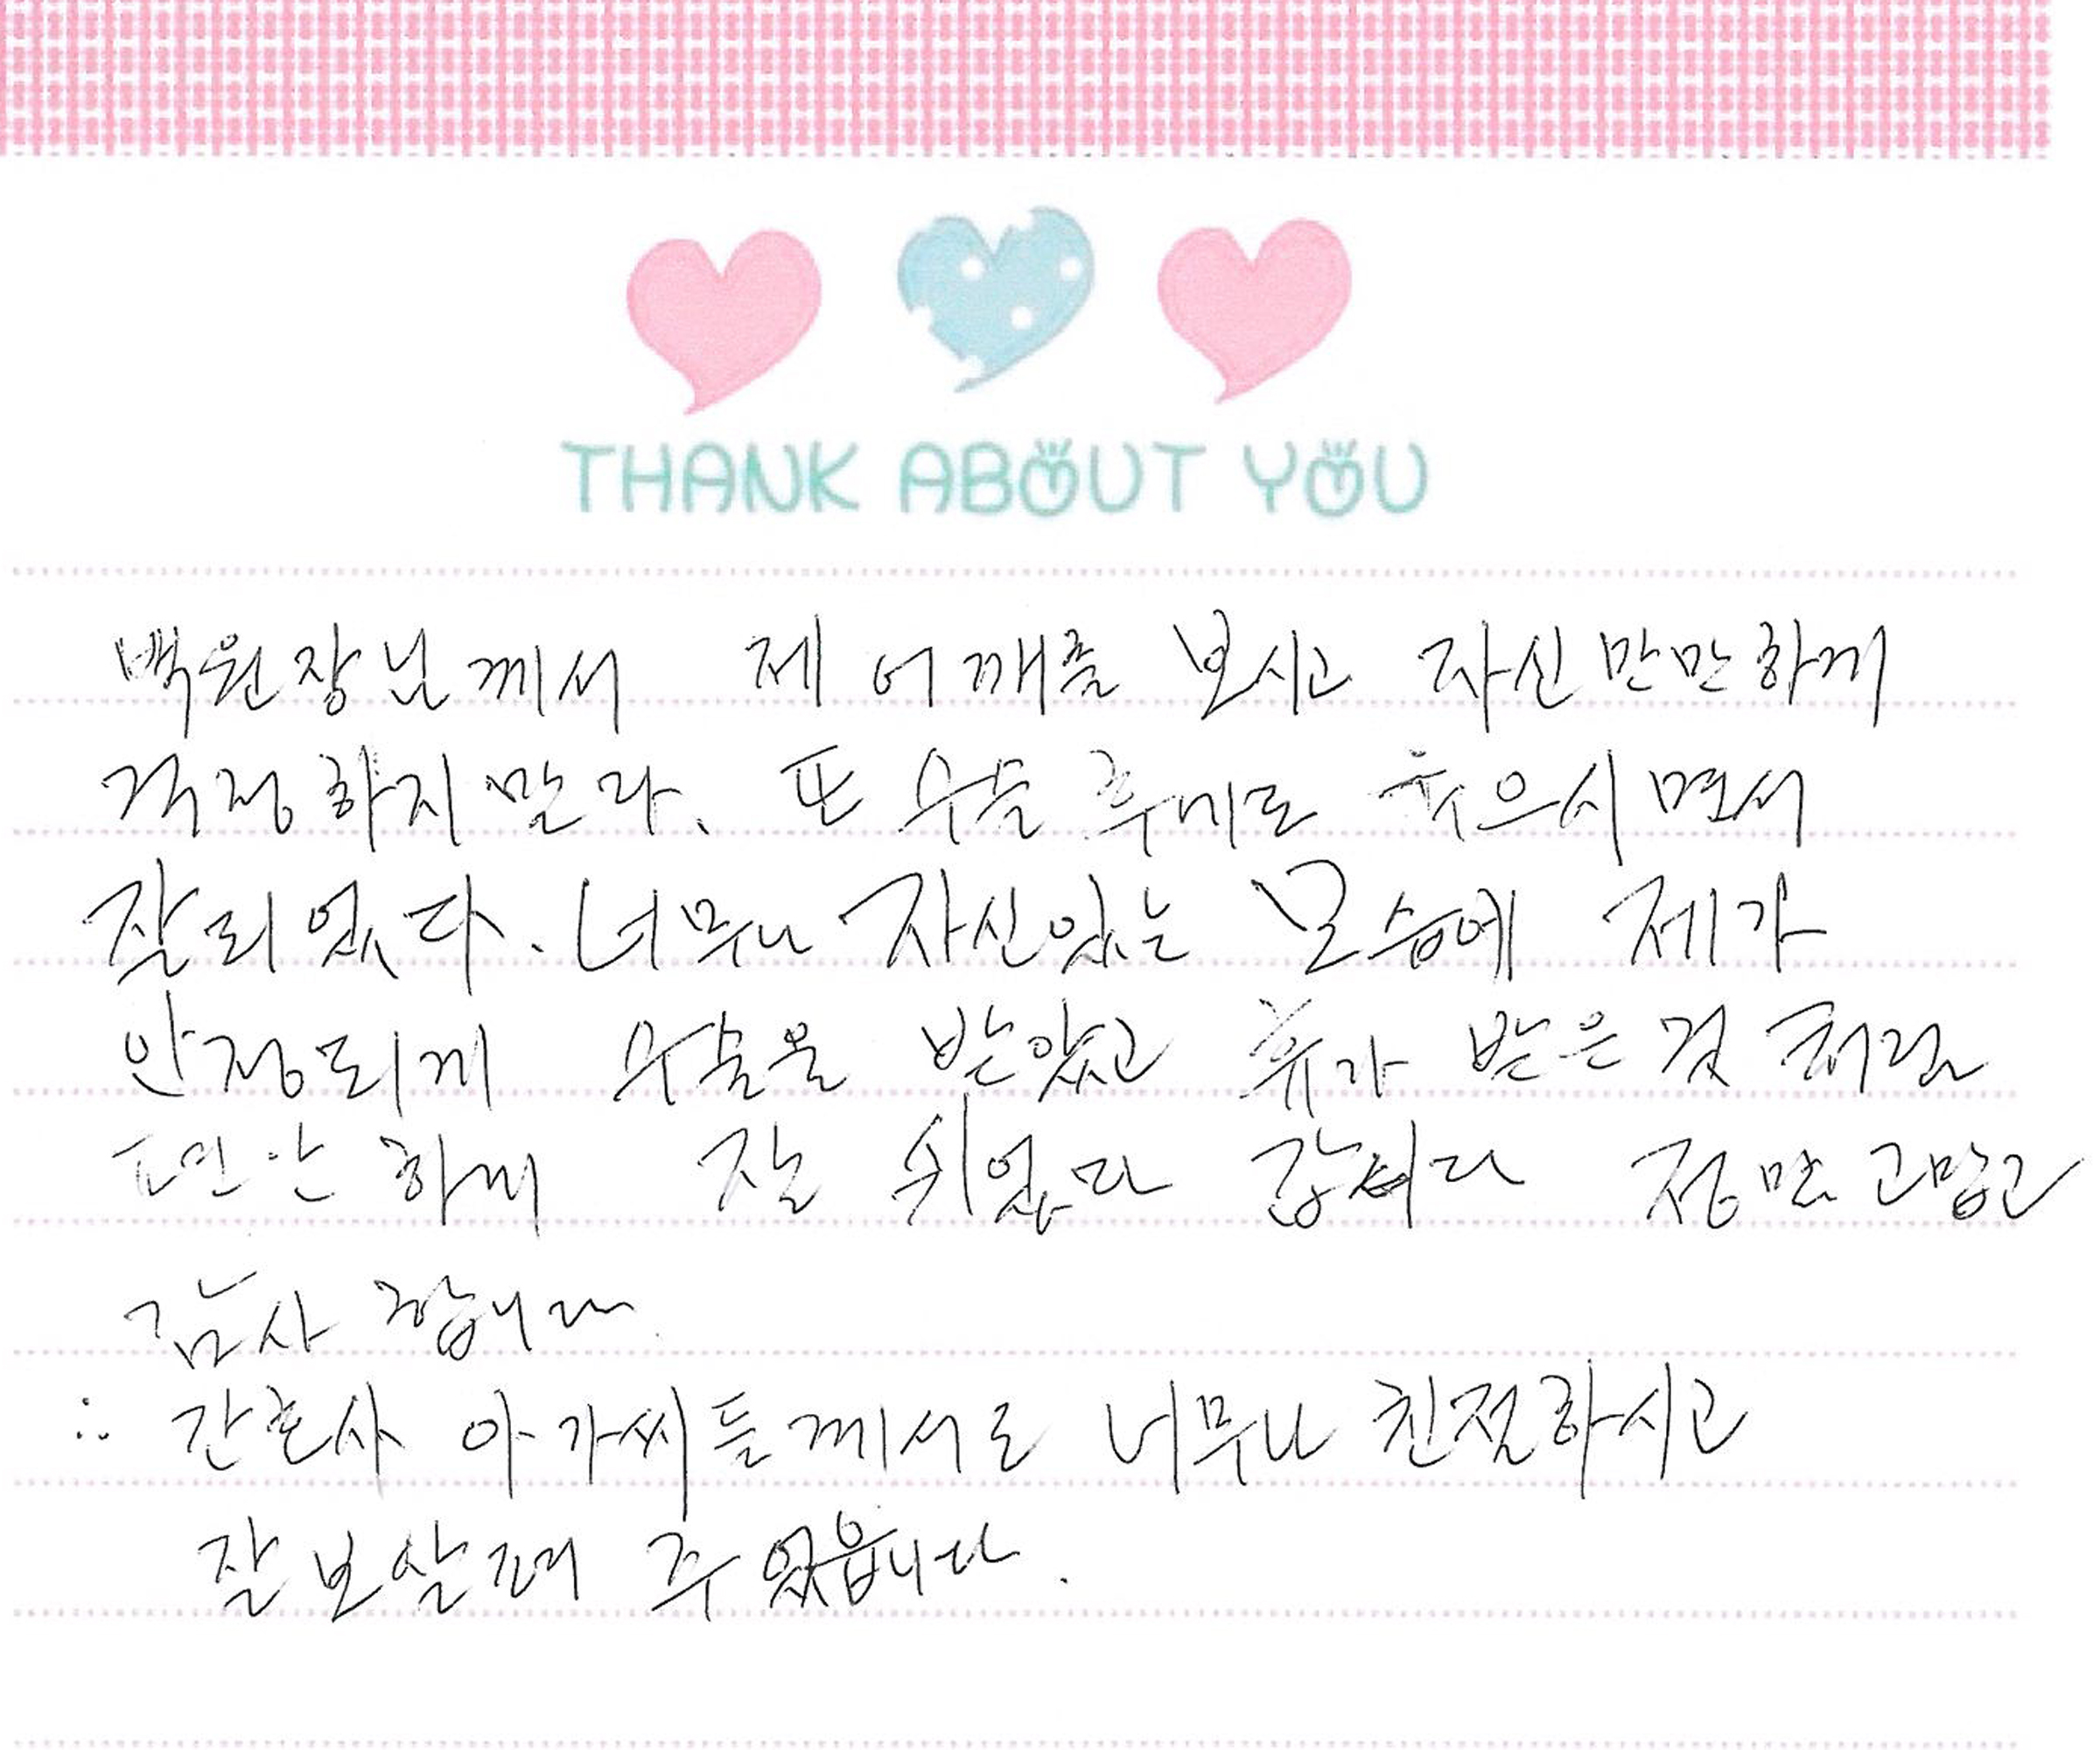 THANK ABOUT YOU
백원장님께서 제 어깨를 보시고 자신만만하게
걱정하지말라. 또 수술후에도 웃으시면서
잘되었다. 너무나 자신있는 모습에 제가
안정되게 수술을 받았고 휴가 받은것 처럼
편안하게 잘 쉬었다 갑니다 정말 고맙고
감사합니다.
∴ 간호사 아가씨들께서도 너무나 친절하시고
잘 보살펴 주었읍니다.